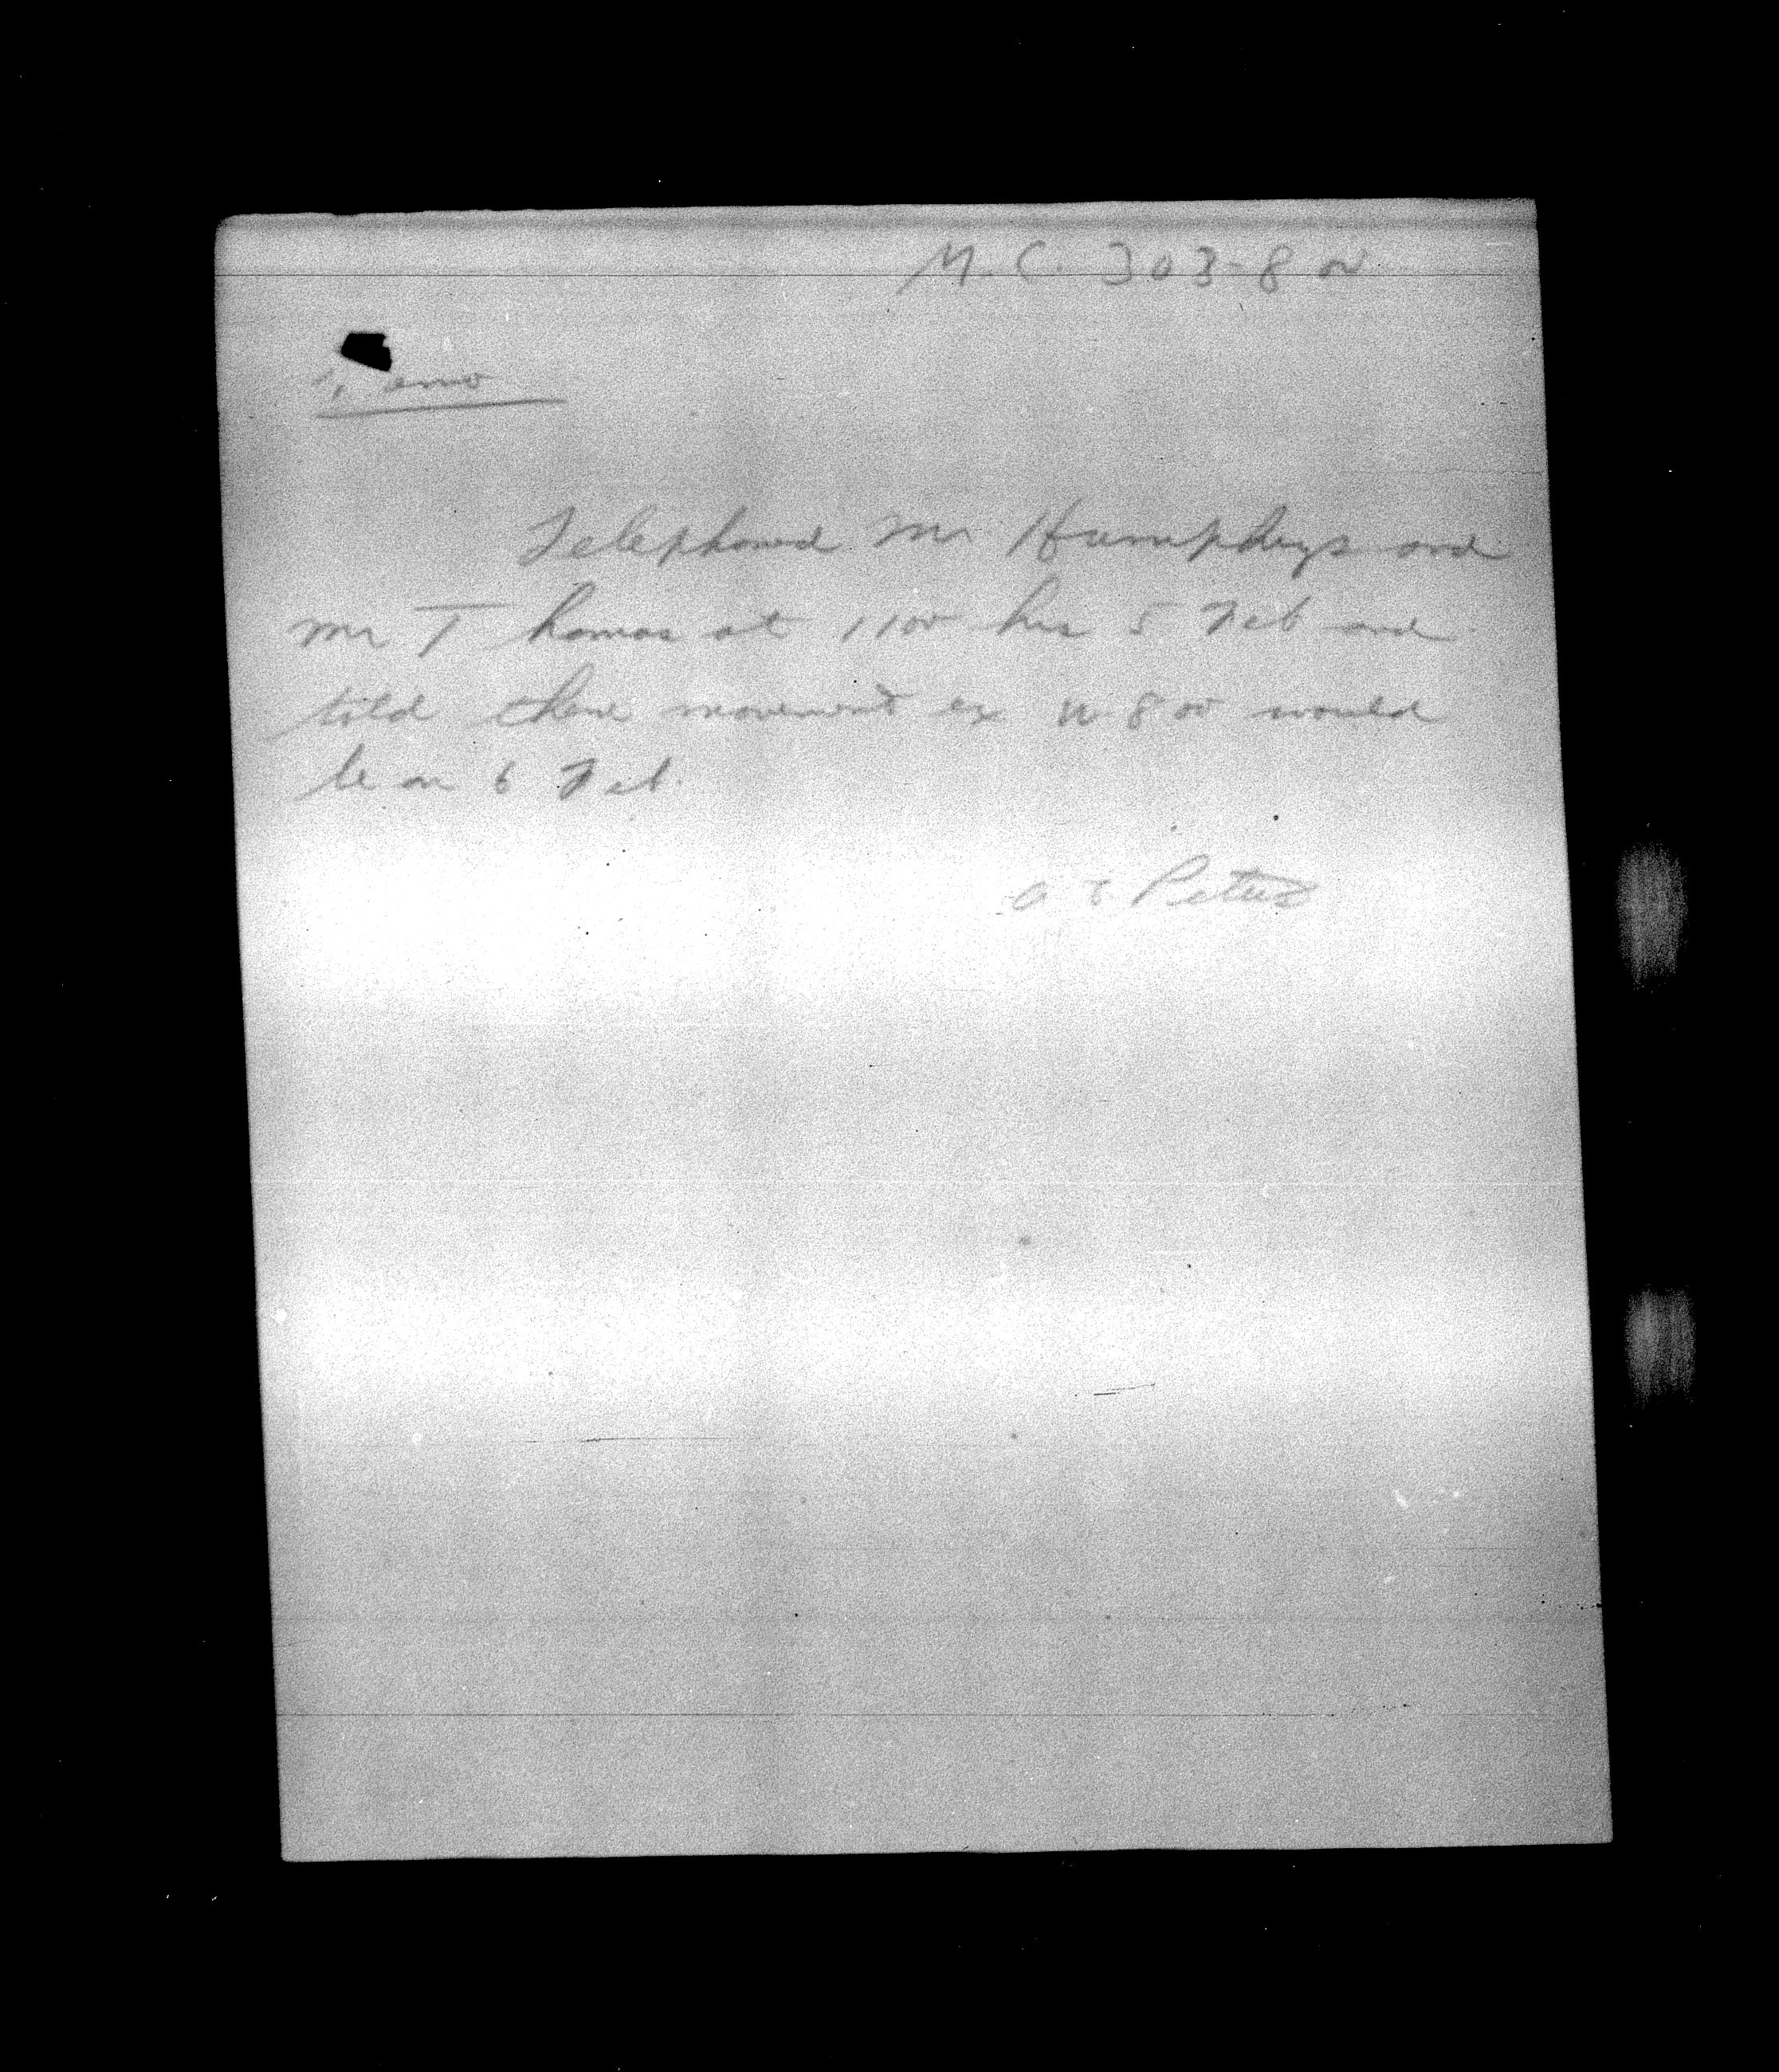 M.C. 303-800
Memo
Telephoned Mr Humphreys and
Mr Thomas at 1100 hrs 5 Feb and
told them movement ex W 800 would
be on 6 Feb.
A E Peters